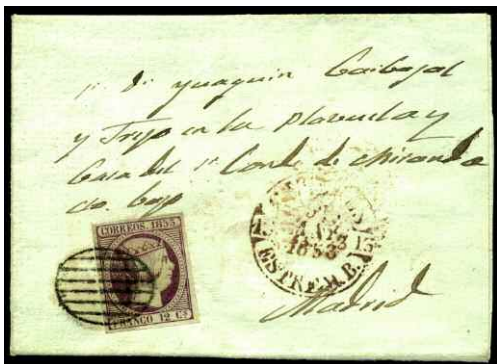 Sr Dn Juaquin Carbajal
y Trejo en la Plazuela y
Casa del Sr Conde de Miranda
cto. bajo
CORREOS 1853
FRANCO 12 Cs
1853
ESTREM. B.
Madrid